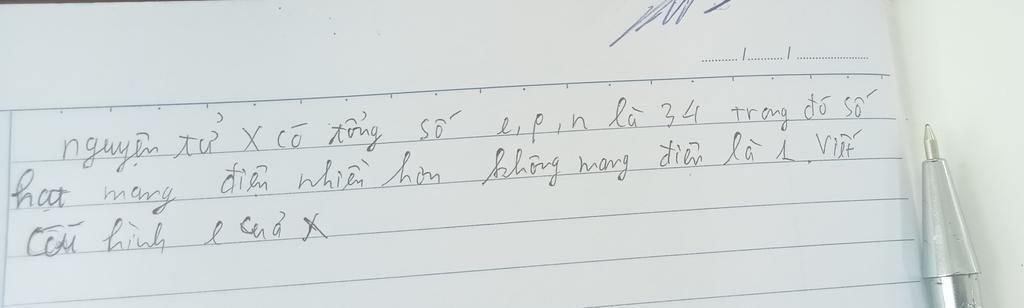 nguyên tử X có tổng số e, p, n là 34 trong đó số
hạt mang điện nhiều hơn không mang điện là 1. Viết
cấu hình e cuả X